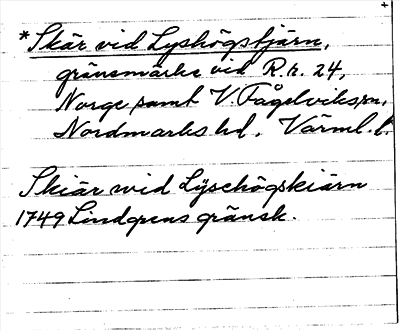 *Skär vid Lyshögstjärn,
gränsmärke vid R.r. 24,
Norge samt V. Fågelviks sn,
Nordmarks hd. Värml. l.
Skiär wid Lÿsehögskiärn
1749 Lindgrens gränsk.